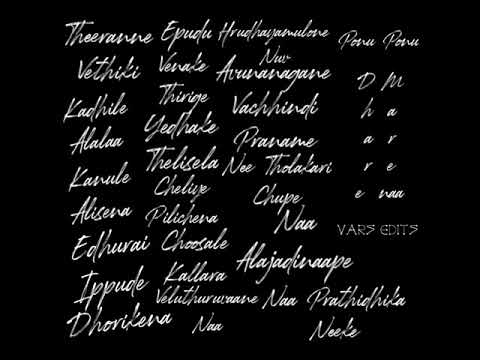 Theeranne
Vethiki
Kadhile
Alalaa
Kanule
Alisena
Edhurai
Ippude
Dhorikena
Epudu
Venake
Thirige
Yedhake
Thelisela
Cheliye
Pilichena
Choosale
Kallara
Veluthuruvaane
Naa
Hrudhayamulone
Nuv
Avunanagane
Vachhindi
Praname
Nee Tholakari
Chupe
Naa
Alajadinaape
Naa Prathidhika
Neeke
Ponu Ponu
D M
h a
a r
r e
e naa
VARS EDITS